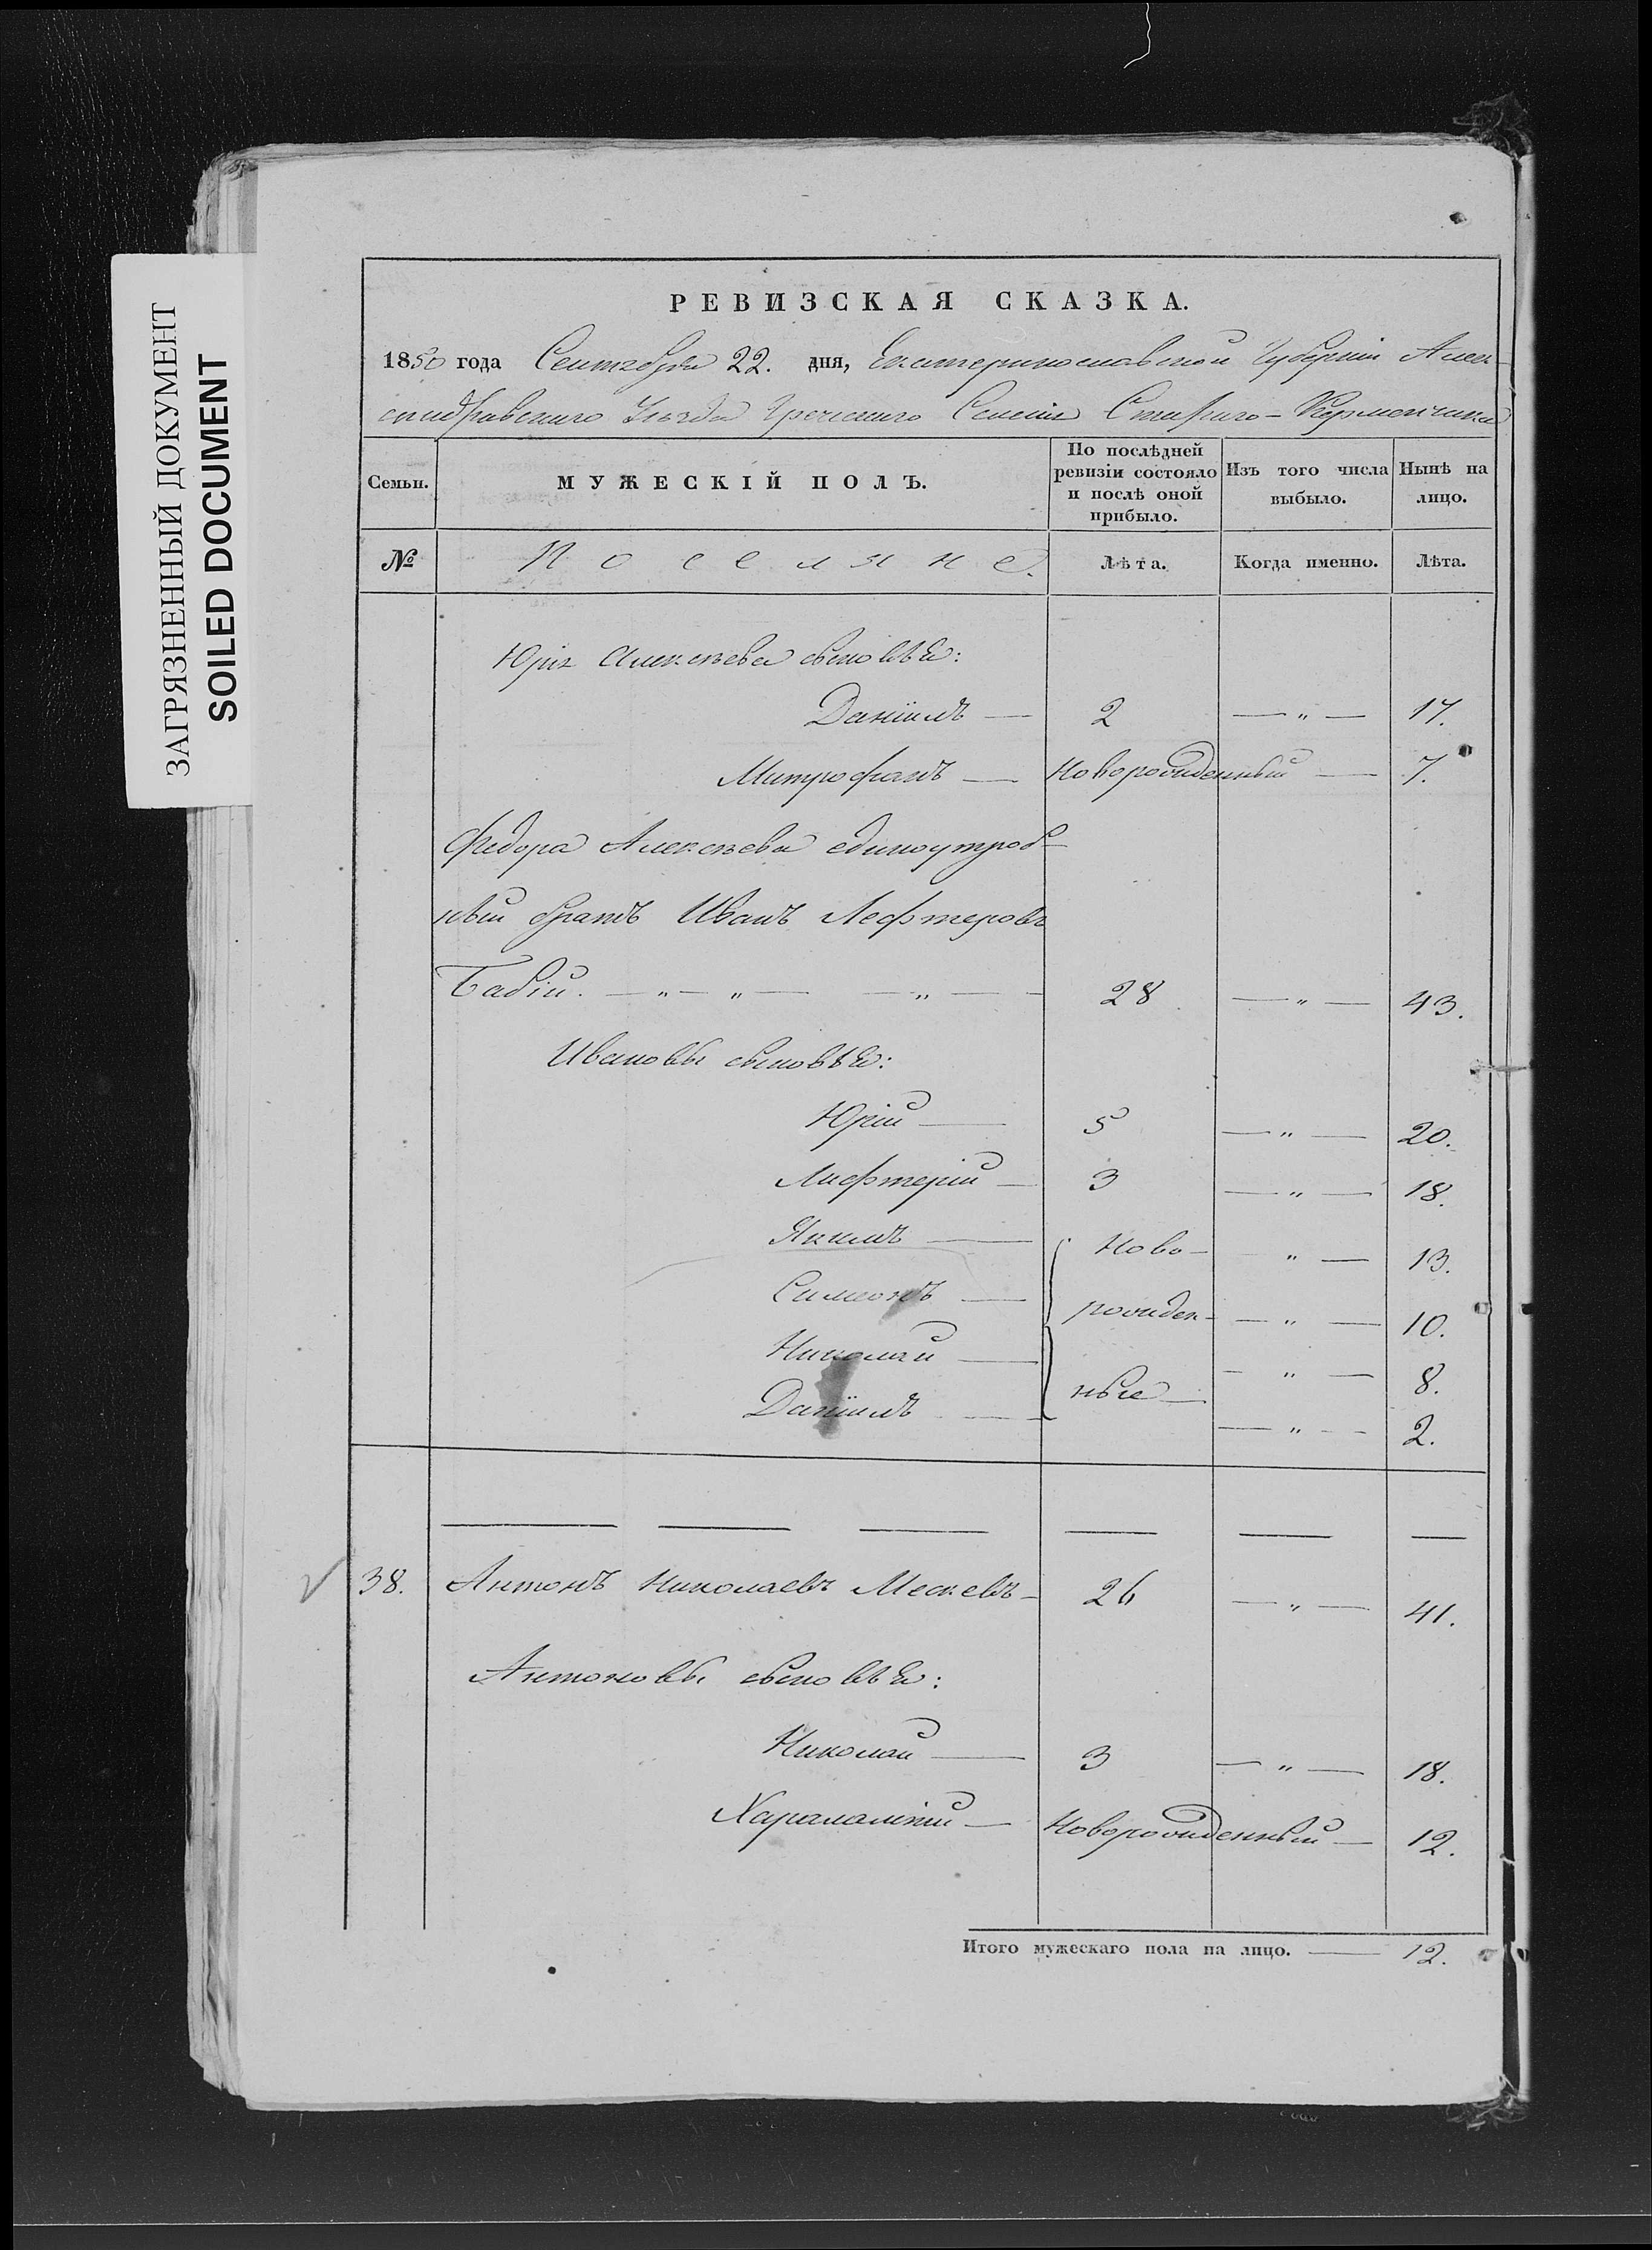 ЗАГРЯЗНЕННЫЙ ДОКУМЕНТ
SOILED DOCUMENT
РЕВИЗСКАЯ СКАЗКА.
1850 года Сентября 22. дня, Екатеринославской Губерніи Алек-
сандровскаго Уѣзда Греческаго Селенія Стараго-Керменчика
Семьи. МУЖЕСКІЙ ПОЛЪ. По послѣдней ревизіи состояло и послѣ оной прибыло. Изъ того числа выбыло. Нынѣ на лицо.
№ Поселяне. Лѣта. Когда именно. Лѣта.
Юрія Алексѣева сыновья:
Даніилъ — 2 — " — 17.
Митрофанъ — Новорожденный — 7.
Федора Алексѣева единоутроб-
ный братъ Иванъ Лефтеровъ
Бабій. — " — " — " — 28 — " — 43.
Ивановы сыновья:
Юрій — 5 — " — 20.
Лифтерій — 3 — " — 18.
Якимъ — Ново- " — 13.
Симионъ — рожден- — " — 10.
Николай — — " — 8.
Даніилъ — ные — — " — 2.
38. Антонъ Николаевъ Мескевъ — 26 — " — 41.
Антоновы сыновья:
Николай — 3 — " — 18.
Харалампій — Новорожденный — 12.
Итого мужескаго пола на лицо. — 12.